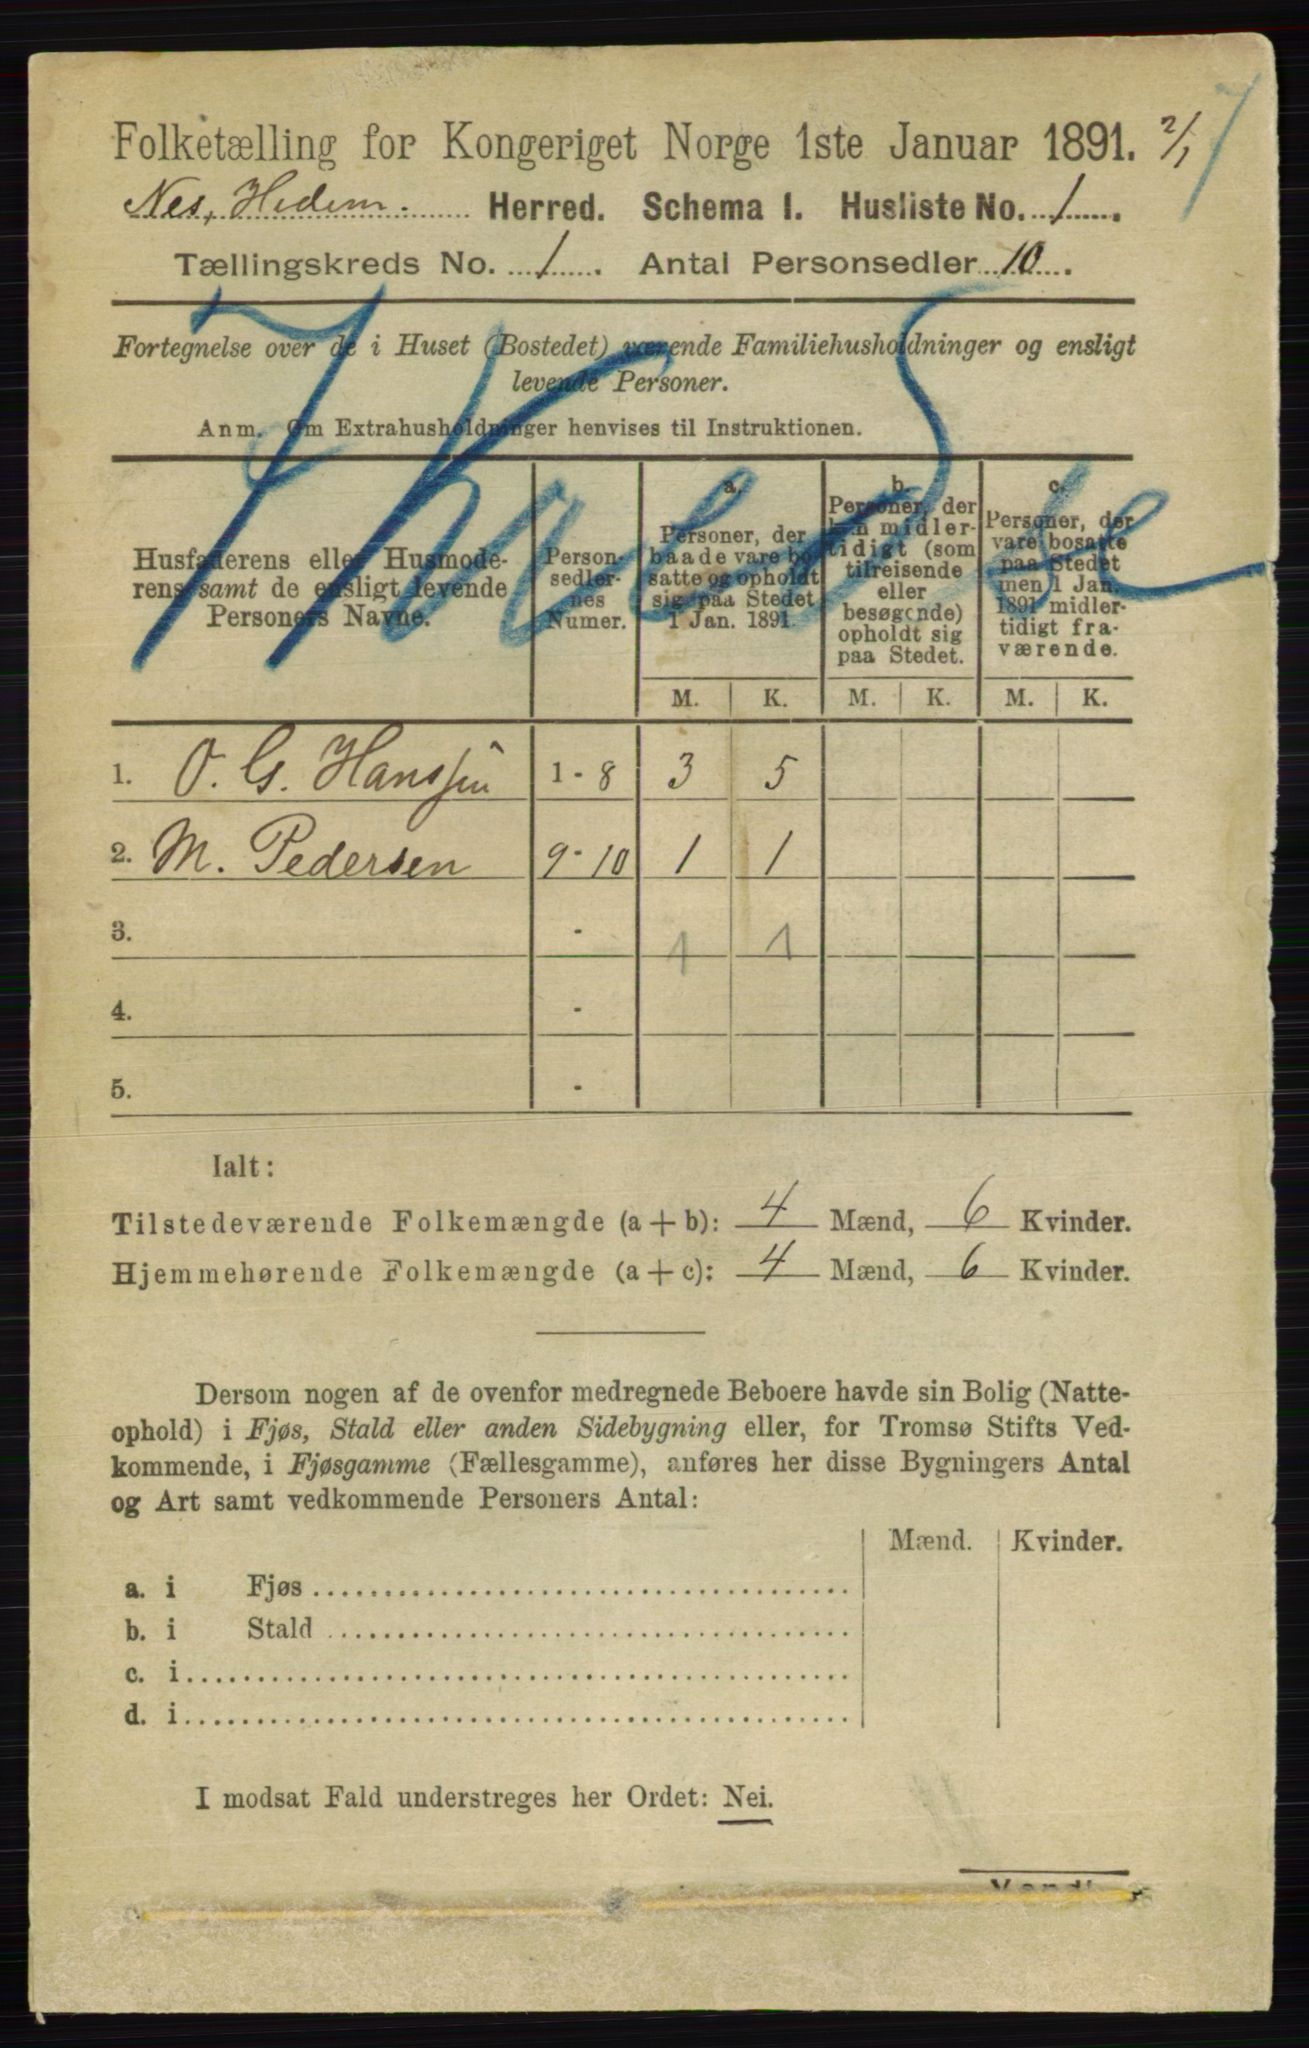 Folketælling for Kongeriget Norge 1ste Januar 1891. 2/1
Nes, Hedem. Herred. Schema I. Husliste No. 1.
Tællingskreds No. 1. Antal Personsedler 10.
Fortegnelse over de i Huset (Bostedet) værende Familiehusholdninger og ensligt
levende Personer.
Anm. Om Extrahusholdninger henvises til Instruktionen.
Husfaderens eller Husmode-
rens samt de ensligt levende
Personers Navne.
Person-
sedler-
nes
Numer.
a.
Personer, der
baade vare bo-
satte og opholdt
sig paa Stedet
1 Jan. 1891.
b.
Personer, der
kun midler-
tidigt (som
tilreisende
eller
besøgende)
opholdt sig
paa Stedet.
c.
Personer, der
vare bosatte
paa Stedet
men 1 Jan.
1891 midler-
tidigt fra-
værende.
M. K. M. K. M. K.
1. O. G. Hanssen 1 - 8 3 5
2. M. Pedersen 9 - 10 1 1
3. - 1 1
4. -
5. -
Ialt:
Tilstedeværende Folkemængde (a + b): 4 Mænd, 6 Kvinder.
Hjemmehørende Folkemængde (a + c): 4 Mænd, 6 Kvinder.
Dersom nogen af de ovenfor medregnede Beboere havde sin Bolig (Natte-
ophold) i Fjøs, Stald eller anden Sidebygning eller, for Tromsø Stifts Ved-
kommende, i Fjøsgamme (Fællesgamme), anføres her disse Bygningers Antal
og Art samt vedkommende Personers Antal:
Mænd. Kvinder.
a. i Fjøs
b. i Stald
c. i
d. i
I modsat Fald understreges her Ordet: Nei.